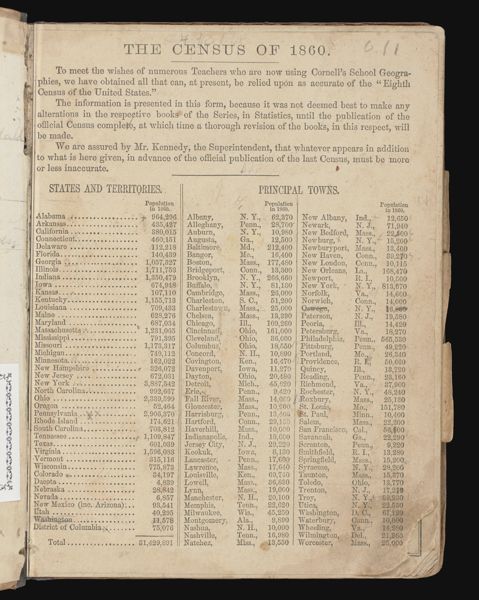 THE CENSUS OF 1860.
To meet the wishes of numerous Teachers who are now using Cornell's School Geogra-
phies, we have obtained all that can, at present, be relied upon as accurate of the "Eighth
Census of the United States."
The information is presented in this form, because it was not deemed best to make any
alterations in the respective books of the Series, in Statistics, until the publication of the
official Census complete, at which time a thorough revision of the books, in this respect, will
be made.
We are assured by Mr. Kennedy, the Superintendent, that whatever appears in addition
to what is here given, in advance of the official publication of the last Census, must be more
or less inaccurate.
STATES AND TERRITORIES.
Population
in 1860.
Alabama 964,296
Arkansas 435,427
California 380,015
Connecticut 460,151
Delaware 112,218
Florida 140,439
Georgia 1,057,327
Illinois 1,711,753
Indiana 1,350,479
Iowa 674,948
Kansas 107,110
Kentucky 1,155,713
Louisiana 709,433
Maine 628,276
Maryland 687,034
Massachusetts 1,231,065
Mississippi 791,395
Missouri 1,173,317
Michigan 749,112
Minnesota 162,022
New Hampshire 326,072
New Jersey 672,031
New York 3,887,542
North Carolina 992,667
Ohio 2,339,599
Oregon 52,464
Pennsylvania 2,906,370
Rhode Island 174,621
South Carolina 703,812
Tennessee 1,109,847
Texas 601,039
Virginia 1,596,083
Vermont 315,116
Wisconsin 775,873
Colorado 34,197
Dacota 4,839
Nebraska 28,842
Nevada 6,857
New Mexico (inc. Arizona) 93,541
Utah 40,295
Washington 11,578
District of Columbia 75,076
Total 31,429,891
PRINCIPAL TOWNS.
Population
in 1860.
Albany, N. Y., 62,370
Alleghany, Penn., 28,700
Auburn, N. Y., 10,980
Augusta, Ga., 12,500
Baltimore, Md., 212,400
Bangor, Me., 16,400
Boston, Mass., 177,480
Bridgeport, Conn., 13,300
Brooklyn, N. Y., 266,660
Buffalo, N. Y., 81,100
Cambridge, Mass., 26,000
Charleston, S. C., 51,200
Charlestown, Mass., 25,000
Chelsea, Mass., 13,390
Chicago, Ill., 109,260
Cincinnati, Ohio, 161,000
Cleveland, Ohio, 36,000
Columbus, Ohio, 18,550
Concord, N. H., 10,890
Covington, Ken., 16,470
Davenport, Iowa, 11,270
Dayton, Ohio, 20,480
Detroit, Mich., 45,620
Erie, Penn.,
Fall River, Mass.,
Gloucester, Mass.,
Harrisburg, Penn.,
Hartford, Conn., 29,150
Haverhill, Mass.,
Indianapolis, Ind.,
Jersey City, N. J., 29,220
Keokuk, Iowa,
Lancaster, Penn.,
Lawrence, Mass., 17,640
Louisville, Ken.,
Lowell, Mass.,
Lynn, Mass., 19,000
Manchester, N. H.,
Memphis, Tenn.,
Milwaukee, Wis.,
Montgomery, Ala.,
Nashua, N. H.,
Nashville, Tenn., 16,980
Natchez, Miss., 13,550
Population
in 1860.
New Albany, Ind., 12,650
Newark, N. J., 71,940
New Bedford, Mass.,
Newburg, N. Y.,
Newburyport, Mass., 13,400
New Haven, Conn.,
New London, Conn.,
New Orleans, La., 168,470
Newport, R. I.,
New York, N. Y., 813,670
Norfolk, Va.,
Norwich, Conn.,
Oswego, N. Y.,
Paterson, N. J., 19,580
Peoria, Ill.,
Petersburg, Va.,
Philadelphia, Penn.,
Pittsburg, Penn., 49,220
Portland, Me.,
Providence, R. I.,
Quincy, Ill.,
Reading, Penn.,
Richmond, Va.,
Rochester, N. Y.,
Roxbury, Mass.,
St. Louis, Mo.,
St. Paul, Min.,
Salem, Mass.,
San Francisco, Cal.,
Savannah, Ga., 22,290
Scranton, Penn.,
Smithfield, R. I.,
Springfield, Mass.,
Syracuse, N. Y.,
Taunton, Mass.,
Toledo, Ohio,
Trenton, N. J.,
Troy, N. Y.,
Utica, N. Y.,
Washington, D. C.,
Waterbury, Conn.,
Wheeling, Va.,
Wilmington, Del.,
Worcester, Mass.,